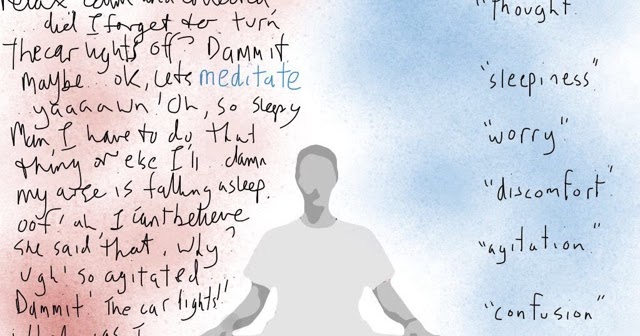 relax calm and
did I forget to turn
the car lights off? Dammit
maybe.. ok, lets meditate
yaaaawn! Oh, so sleepy
Man, I have to do that
thing or else I'll damn
my arse is falling asleep.
oof! ah, I can't believe
she said that. Why?
ugh! so agitated
Dammit! The car lights!!
"thought"
"sleepiness"
"worry"
"discomfort"
"agitation"
"confusion"